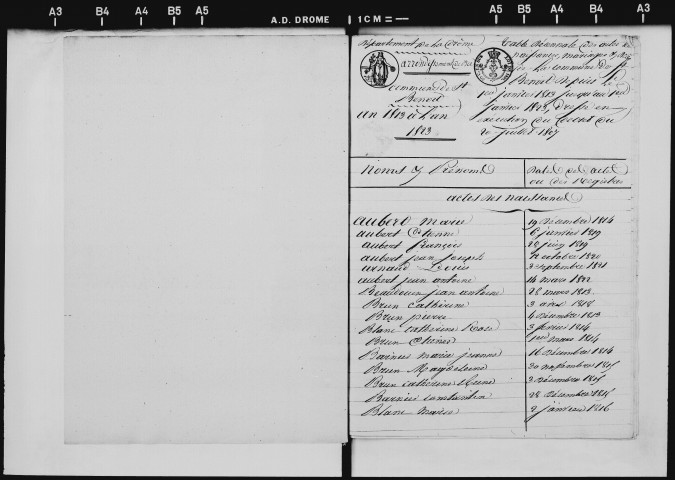 A3 B4 A4 B5 A5 A.D. DROME 1 CM = A5 B5 A4 B4 A3
Département de la Drôme
arrondissement de Die
Commune de St
Benoit
an 1813 à l'an
1823
Table Décennale des actes de
naissance, mariages
la Commune de St
Benoit depuis le
1er janvier 1813 jusqu'au 1er
janvier 1823, Dressé en
exécution du Décret du
20 juillet 1807
Noms & Prénoms
Dates des actes
ou des Registres
actes des Naissances
aubert marie 19 décembre 1814
aubert Etienne 6 janvier 1819
aubert françois 28 juin 1819
aubert jean joseph 21 octobre 1820
arnaud Louis 3 septembre 1821
aubert jean antoine 14 mars 1822
Beaudouin jean antoine 28 mars 1813
Brun Cathérine 3 août 1818
Brun pierre 4 décembre 1813
Blanc catherine Rose 3 février 1814
Brun 1er mars 1814
Barnier marie jeanne 16 décembre 1814
Brun Magdeleine 30 novembre 1815
Brun catherine 3 décembre 1815
Barnier constantin 28 décembre 1815
Blanc 2 janvier 1816